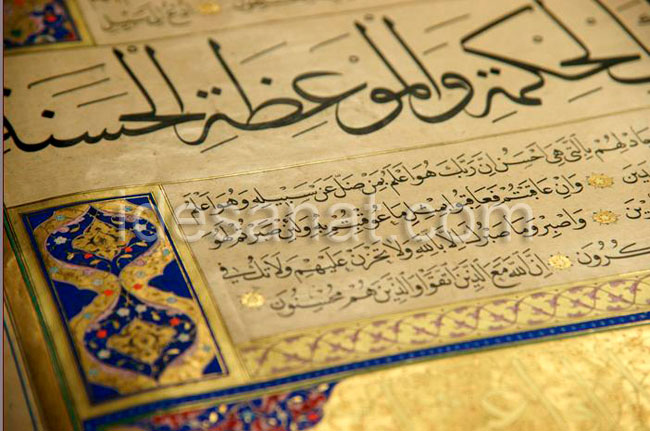 لحكمة والموعظة الحسنة
جادلهم بالتي هي احسن ان ربك هو اعلم بمن ضل عن سبيله وهو اعلم
دين وان عاقبتم فعاقبوا بمثل ما عوقبتم به ولئن صبرتم لهو
رين واصبر وما صبرك الا بالله ولا تحزن عليهم ولا تك في
كرون ان الله مع الذين اتقوا والذين هم محسنون
idesanat.com